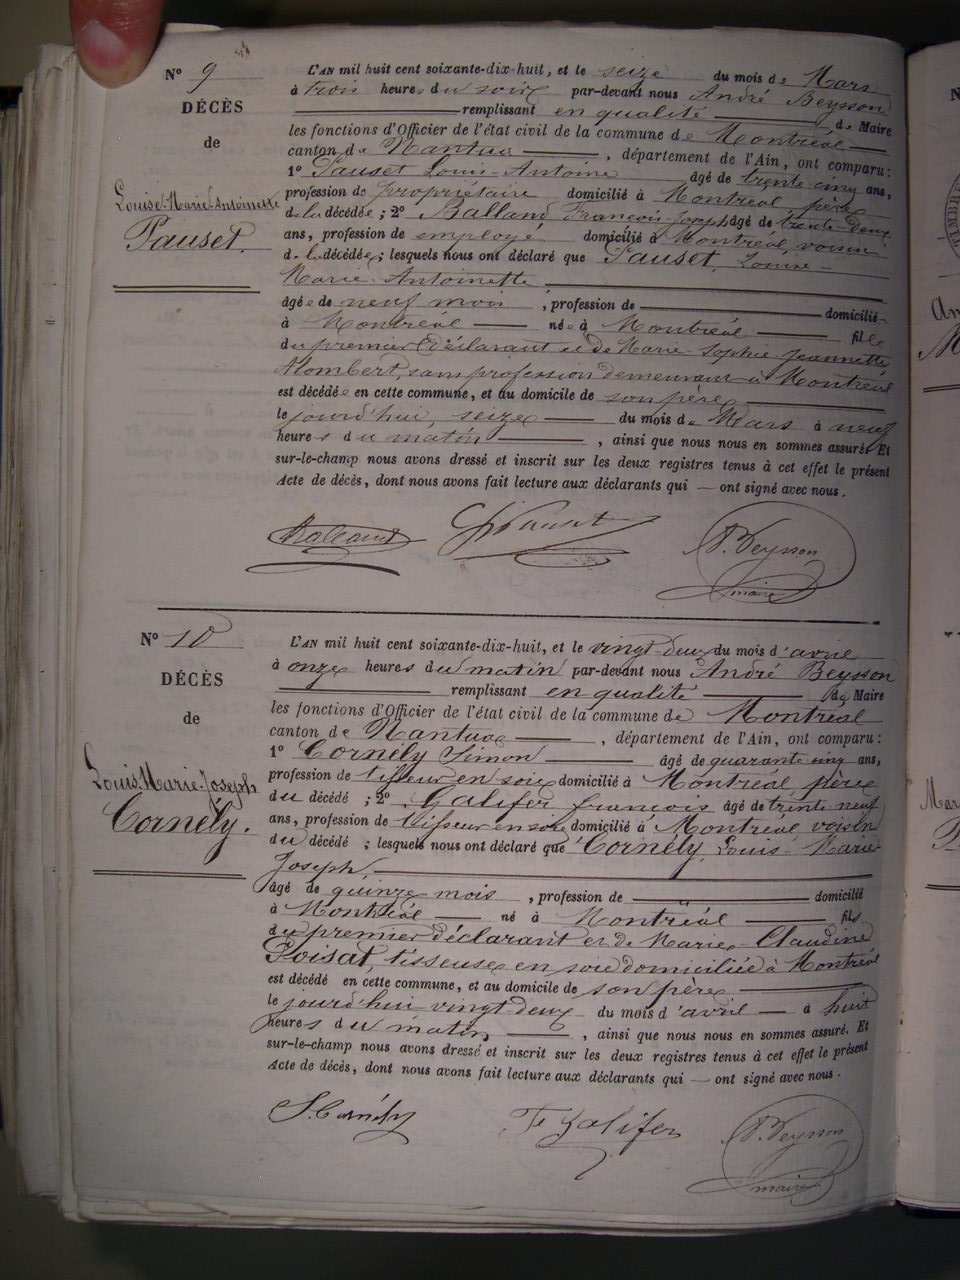 N° 9
DÉCÈS
de
Louise-Marie-Antoinette
Pauset.
L'AN mil huit cent soixante-dix-huit, et le seize du mois de Mars
à trois heures du soir par-devant nous André Beysson
remplissant en qualité de Maire
les fonctions d'Officier de l'état civil de la commune de Montréal
canton de Nantua, département de l'Ain, ont comparu:
1° Pauset Louis-Antoine âgé de trente cinq ans,
profession de propriétaire domicilié à Montréal, père
de la décédée; 2° Balland François-Joseph âgé de trente-deux
ans, profession de employé domicilié à Montréal, voisin
de la décédée; lesquels nous ont déclaré que Pauset, Louise-
Marie-Antoinette
âgée de neuf mois, profession de domicilié
à Montréal née à Montréal fille
du premier déclarant et de Marie-Sophie-Jeannette
Alombert, sans profession demeurant à Montréal
est décédée en cette commune, et au domicile de son père
le jourd'hui, seize du mois de Mars à neuf
heures du matin, ainsi que nous nous en sommes assuré. Et
sur-le-champ nous avons dressé et inscrit sur les deux registres tenus à cet effet le présent
Acte de décès, dont nous avons fait lecture aux déclarants qui — ont signé avec nous.
Balland Pauset A. Beysson
maire
N° 10
DÉCÈS
de
Louis-Marie-Joseph
Cornély.
L'AN mil huit cent soixante-dix-huit, et le vingt-deux du mois d'avril
à onze heures du matin par-devant nous André Beysson
remplissant en qualité de Maire
les fonctions d'Officier de l'état civil de la commune de Montréal
canton de Nantua, département de l'Ain, ont comparu:
1° Cornély Simon âgé de quarante-un ans,
profession de tisseur en soie domicilié à Montréal, père
du décédé; 2° Galifer François âgé de trente-neuf
ans, profession de tisseur en soie domicilié à Montréal, voisin
du décédé; lesquels nous ont déclaré que Cornély, Louis-Marie-
Joseph,
âgé de quinze mois, profession de domicilié
à Montréal né à Montréal fils
du premier déclarant et de Marie-Claudine
Poisat, tisseuse en soie domiciliée à Montréal
est décédé en cette commune, et au domicile de son père
le jourd'hui vingt-deux du mois d'avril — à huit
heures du matin, ainsi que nous nous en sommes assuré. Et
sur-le-champ nous avons dressé et inscrit sur les deux registres tenus à cet effet le présent
Acte de décès, dont nous avons fait lecture aux déclarants qui — ont signé avec nous.
S. Cornély F. Galifer A. Beysson
maire